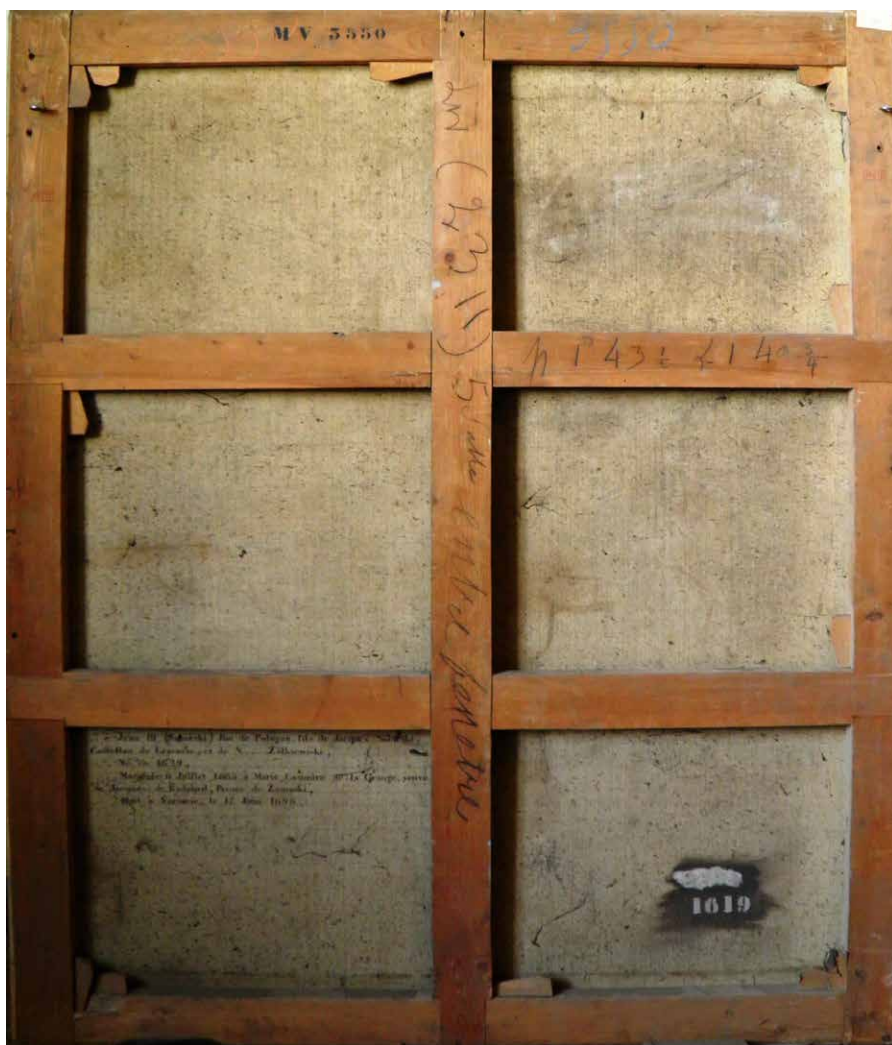 MV 5550
5550
(2311) 5 entre fenetre
1 43 1/2 1 40 3/4
Jean III (Sobieski) Roi de Pologne, fils de Jacques
Castellan de Cracovie, et de N.... Zolkiewski,
Né en 1629.
Juillet 1665 à Marie Casimire de la Grange, veuve
de Jacques de Radziwil, Prince de Zamoski,
Mort à Varsovie, le 17 Juin 1696.
1619